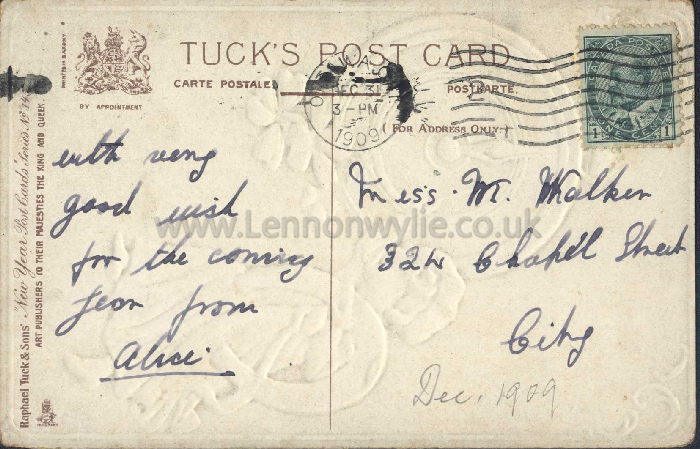 TUCK'S POST CARD
CARTE POSTALE
POSTKARTE.
(FOR ADDRESS ONLY.)
BY APPOINTMENT
Raphael Tuck & Sons' "New Year Post Cards" Series No
ART PUBLISHERS TO THEIR MAJESTIES THE KING AND QUEEN.
DEC 31
3-PM
1909
1 ONE CENT 1
with very
good wish
for the coming
year from
Alice.
Miss. M. Walker
324 Chapell Street
City
Dec. 1909
www.Lennonwylie.co.uk